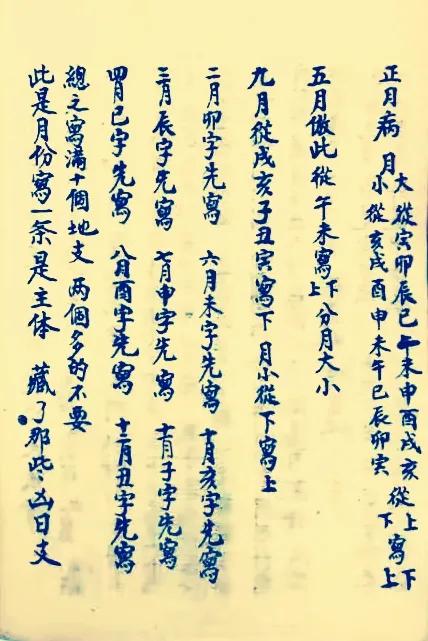 正月病 月大從寅卯辰巳午未申酉戌亥從上寫下
小從亥戌酉申未午巳辰卯寅下寫上
五月倣此從午未寫上下分月大小
九月從戌亥子丑寅寫下 月小從下寫上
二月卯字先寫 六月未字先寫 十月亥字先寫
三月辰字先寫 七月申字先寫 十一月子字先寫
四月巳字先寫 八月酉字先寫 十二月丑字先寫
總之寫滿十個地支 兩個多的不要
此是月份寫一条是主体 藏了那些凶日支